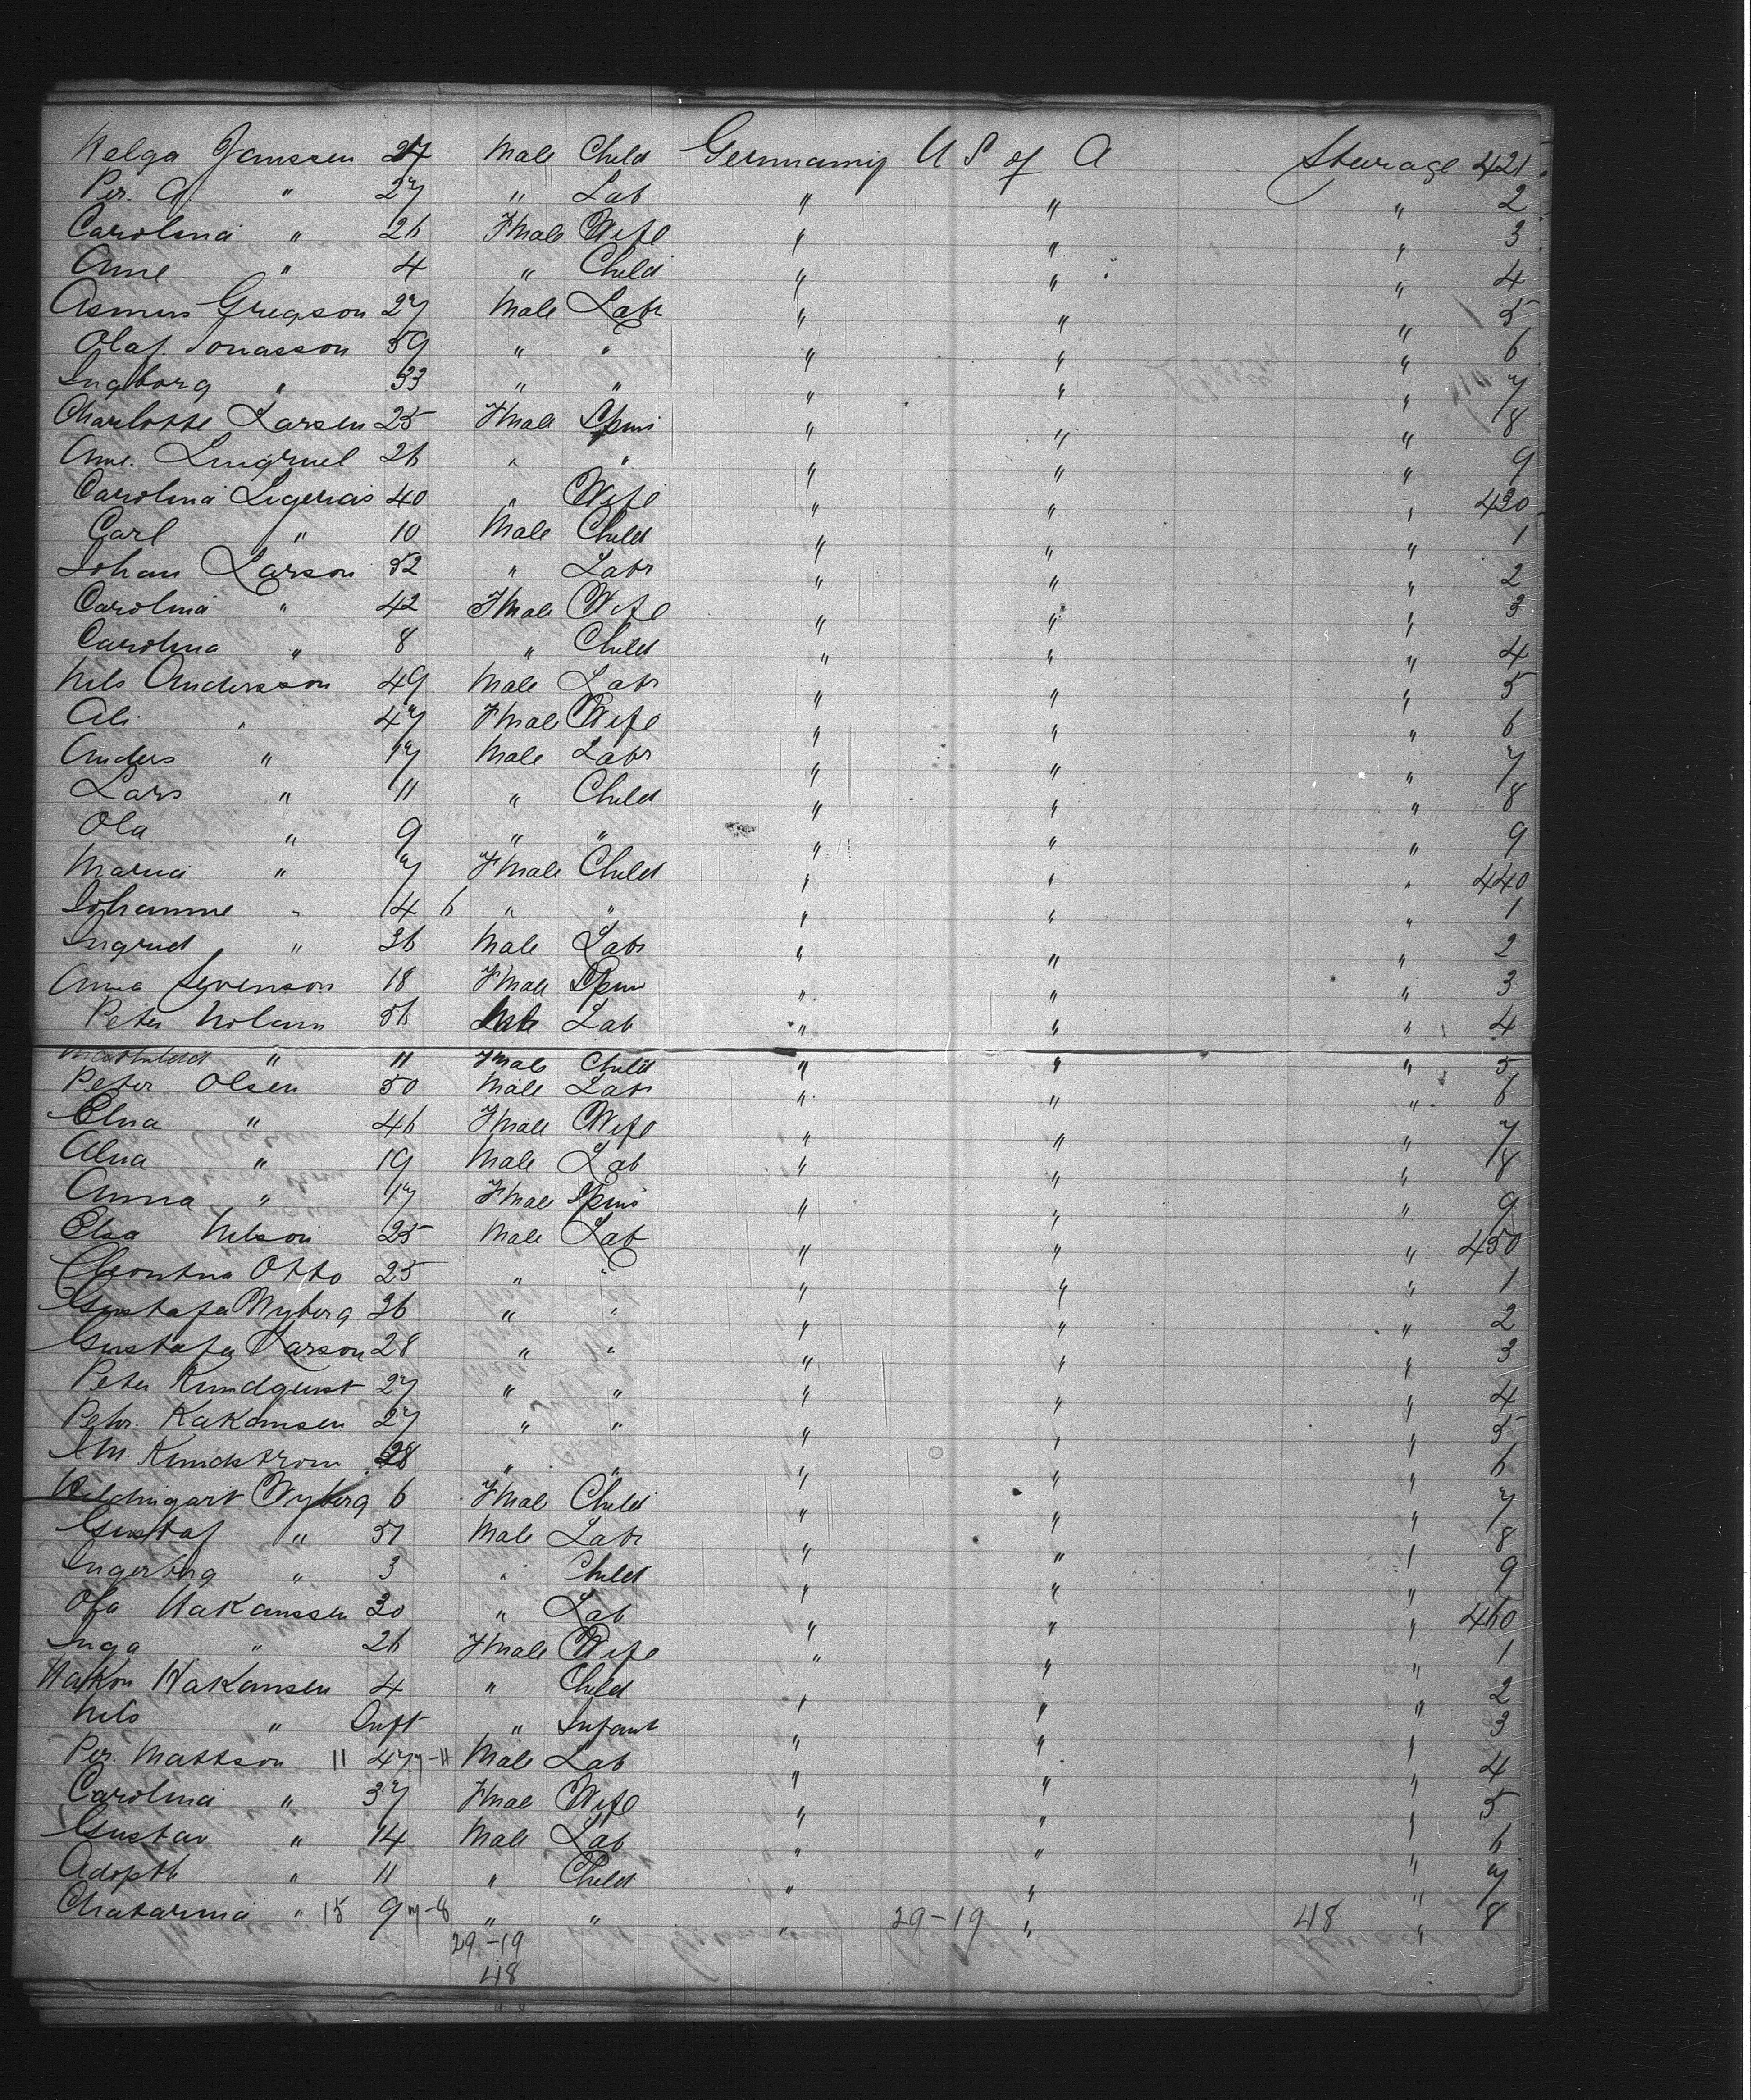 Helga Janssen 24 Male Child Germany U S of A Steerage 421
Per. A " 27 " Lab " " " 2
Carolina " 26 Fmale Wife " " " 3
Anne " 4 " Child " " " 4
Asmus Gregson 27 Male Labr " " " 5
Olaf Jonasson 59 " " " " " 6
Ingborg " 33 " " " " " 7
Charlotte Larsen 25 Fmale Spins " " " 8
Ane. 26 " " " " " 9
Carolina 40 " Wife " " " 430
Carl " 10 Male Child " " " 1
Johan Larson 52 " Labr " " " 2
Carolina " 42 Fmale Wife " " " 3
Carolina " 8 " Child " " " 4
Nils Andersson 49 Male Labr " " " 5
" 47 Fmale Wife " " " 6
Anders " 17 Male Labr " " " 7
Lars " 11 " Child " " " 8
Ola " 9 " " " " " 9
Maria " 7 Fmale Child " " " 440
Johanne " 14 6 " " " " " 1
Ingrid " 36 Male Labr " " " 2
Anna Svenson 18 Fmale Spins " " " 3
Peter Nolann 56 Male Lab " " " 4
" 11 Fmale Child " " " 5
Peter Olsen 50 Male Labr " " " 6
Elna " 46 Fmale Wife " " " 7
Alna " 19 Male Lab " " " 8
Anna " 17 Fmale Spins " " " 9
Elsa Nelson 25 Male Lab " " " 450
Otto 25 " " " " " 1
Gustafa Wyberg 36 " " " " " 2
Gustafa Larson 28 " " " " " 3
Peter Kundquist 27 " " " " " 4
Pehr. Kakansen 27 " " " " " 5
Kundstrom 28 " " " " " 6
Hildingart Wyberg 6 Fmal Child " " " 7
Gustaf " 51 Male Labr " " " 8
Ingerborg " 3 " Child " " " 9
Ola Hakanssen 30 " Lab " " " 460
Inga " 26 Fmale Wife " " " 1
Hakon Hakansen 4 " Child " " " 2
Nils " Inft " Infant " " " 3
Per. Mattson 11 47 7-11 Male Lab " " " 4
Carolina " 37 Fmal Wife " " " 5
Gustav " 14 Male Lab " " " 6
Adopth " 11 " Child " " " 7
Chatarina " 15 9 7-8 " " " 29-19 " 48 " 8
29-19
48